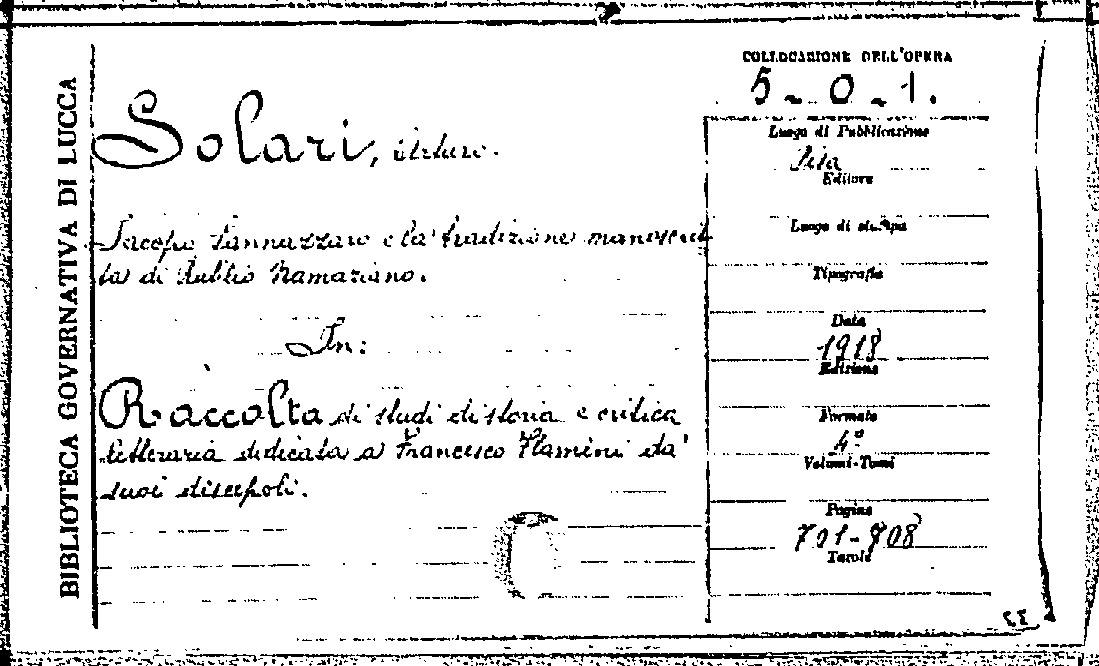 BIBLIOTECA GOVERNATIVA DI LUCCA
Solari, Arturo.
Jacopo Sannazzaro e la tradizione manoscrit-
ta di Rutilio Namaziano.
In:
Raccolta di studi di storia e critica
letteraria dedicata a Francesco Flamini da'
suoi discepoli.
COLLOCAZIONE DELL'OPERA
5 - 0 - 1.
Luogo di Pubblicazione
Pisa
Editore
Luogo di stampa
Tipografia
Data
1918
Edizione
Formato
4°
Volumi-Tomi
Pagine
701-708
Tavole